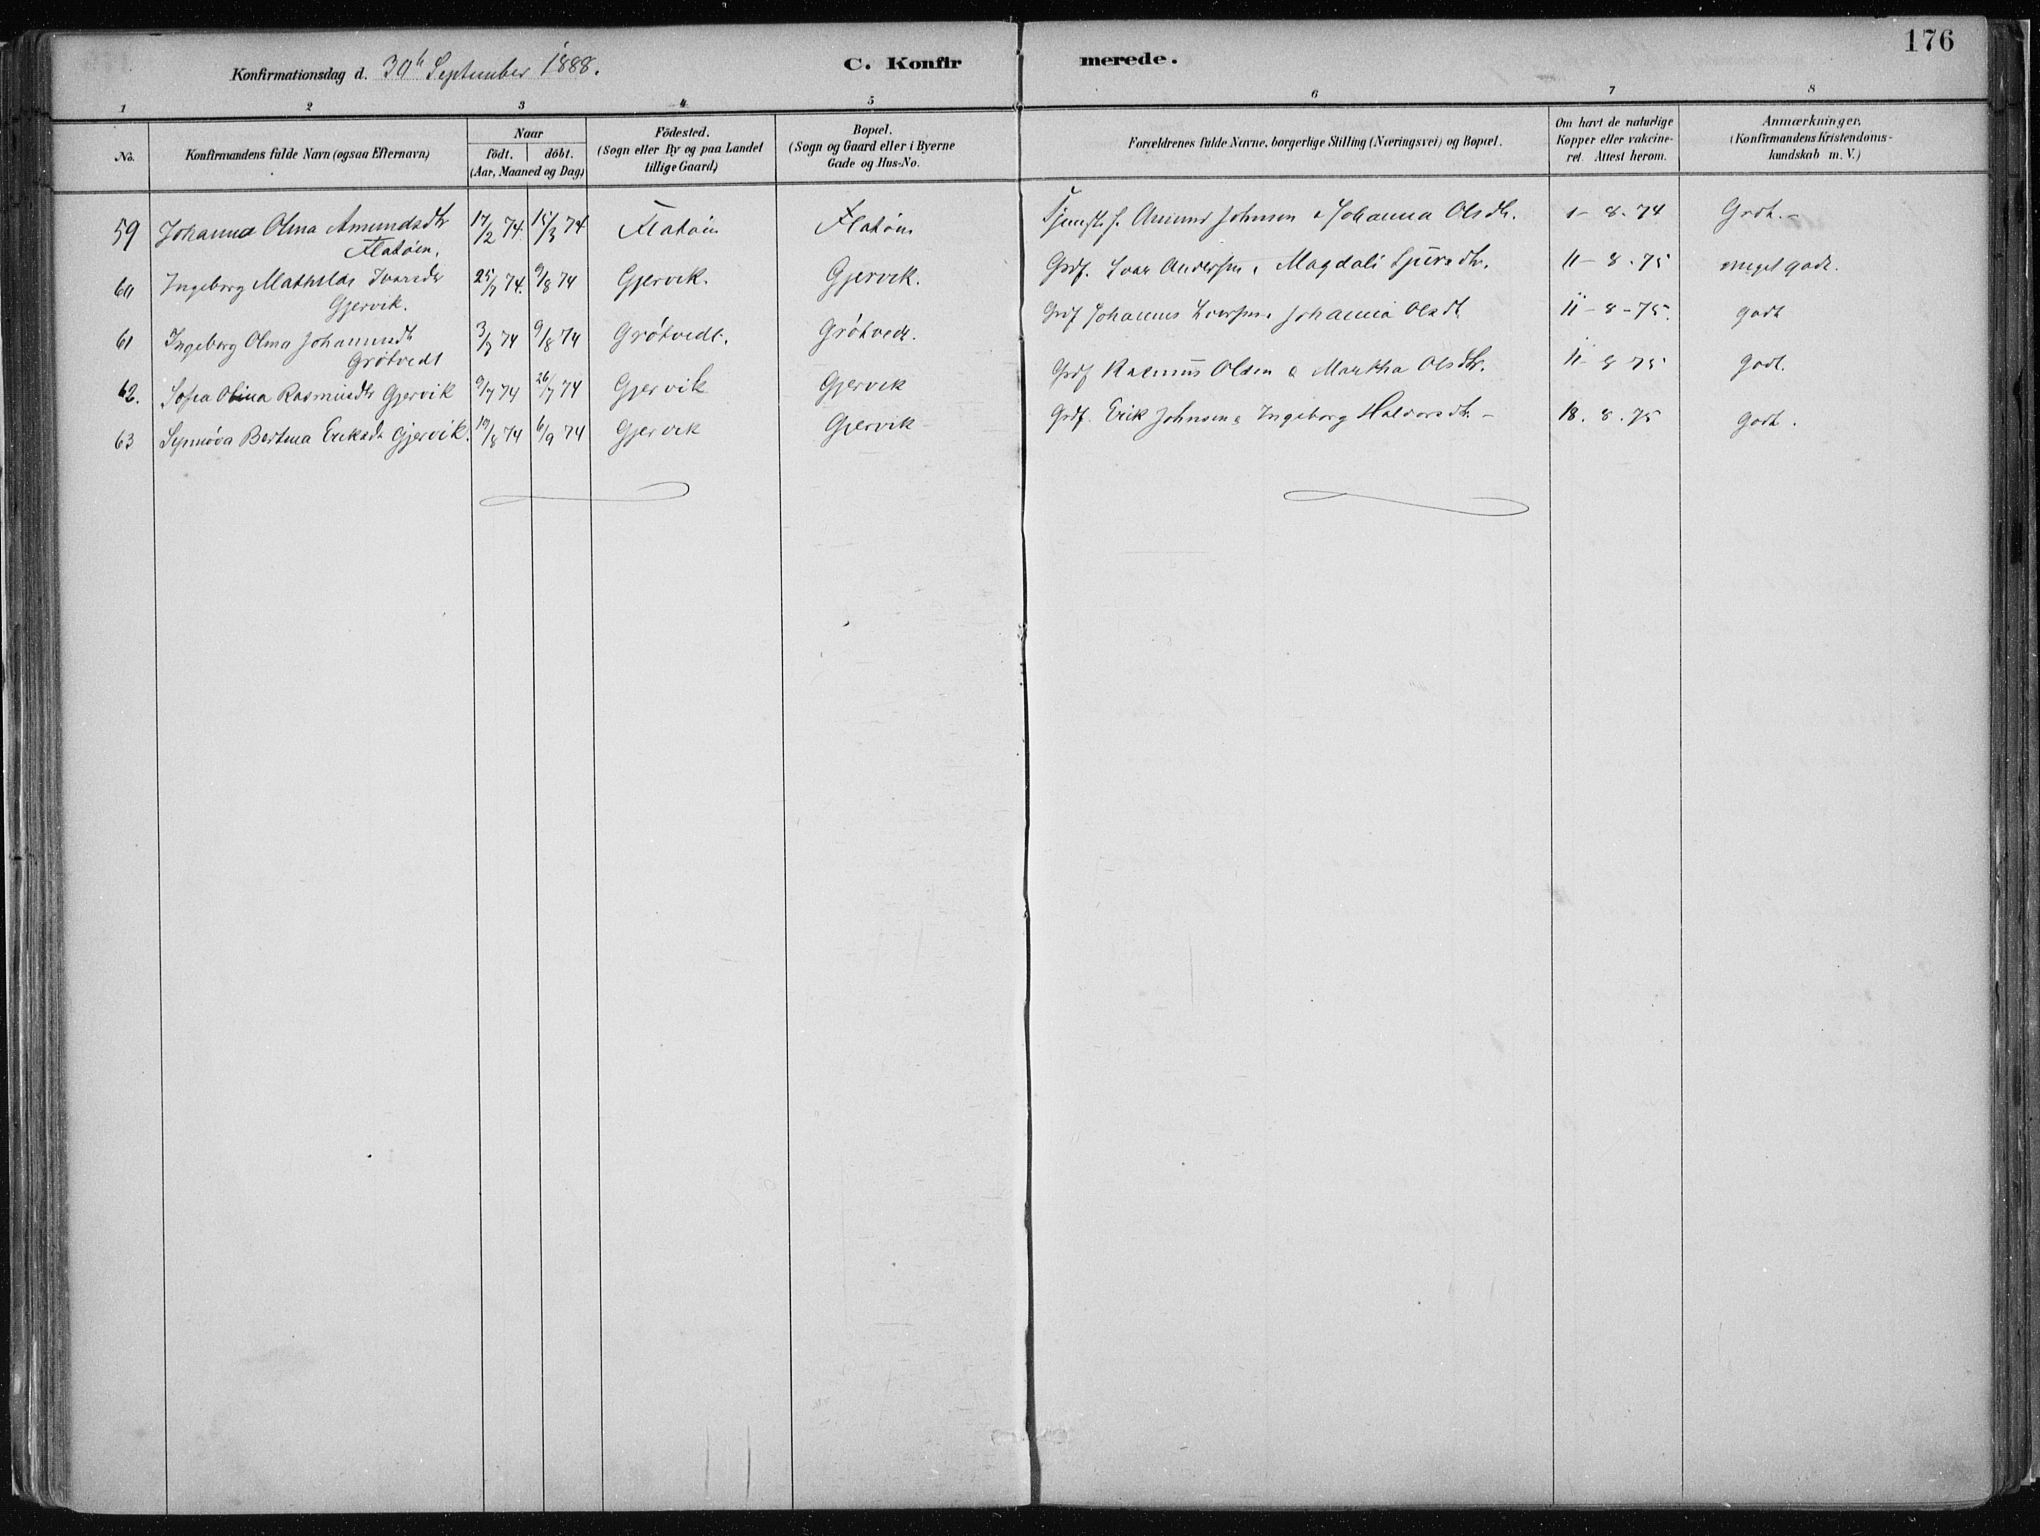 176
Konfirmationsdag d. 30te September 1888.
C. Konfirmerede.
1 2 3 4 5 6 7 8
No.
Konfirmandens fulde Navn (ogsaa Efternavn)
Naar
födt. döbt.
(Aar, Maaned og Dag)
Födested.
(Sogn eller By og paa Landet
tillige Gaard)
Bopæl.
(Sogn og Gaard eller i Byerne
Gade og Hus-No.
Forældrenes fulde Navne, borgerlige Stilling (Næringsvei) og Bopæl.
Om havt de naturlige
Kopper eller vakcine-
ret. Attest herom.
Anmærkninger,
(Konfirmandens Kristendoms-
kundskab m. V.)
59 Johanna Olina Amundsdtr 17/2 74 15/3 74 Flatøen Flatøen Amund Johnsen & Johanna Olsdtr. 1-8-74 Godt.-
Flatøen.
60 Ingeborg Mathilda Ivarsdr 25/7 74. 9/8 74 Gjervik. Gjervik. Grdf. Ivar Andersen & Magdali Sjursdtr. 11-8-75 meget godt.
Gjervik.
61 Ingeborg Olina Johannesdt 3/7 74 9/8 74 Grøtvedt. Grøtvedt. Grdf Johannes Iversen & Johanna Olsdt 11-8-75. godt
Grøtvedt
62. Sofia Olina Rasmusdtr Gjervik 9/7 74 26/7 74 Gjervik Gjervik Grdf Rasmus Olsen & Martha Olsdtr. 11-8 75 godt.
63 Synnøva Bertina Eriksdt Gjervik. 19/8 74 6/9 74 Gjervik Gjervik Grdf. Erik Johnsen & Ingeborg Halvorsdtr.- 18. 8. 75 godt.